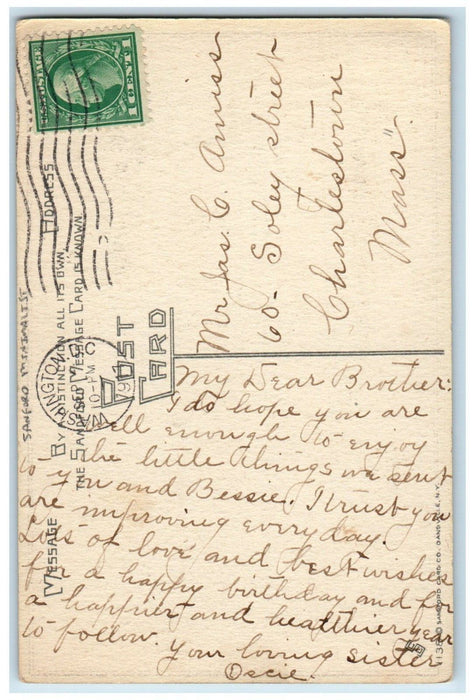 POSTAGE
1 CENT 1
ADDRESS
BY A DISTINCTION ALL ITS OWN
THE SANFORD MESSAGE CARD IS KNOWN
POST
CARD
WASHINGTON
10-PM
D.C.
Mr Jas. C. Amiss
60- Soley street
Charlestown
Mass.
MESSAGE
My Dear Brother:
I do hope you are
well enough to enjoy
the little things we sent
to you and Bessie. I trust you
are improving every day.
Lots of love and best wishes
for a happy birthday and for
a happier and healthier year
to follow. Your loving sister
Oscie.
SANFORD CARD CO. DANSVILLE, N.Y.